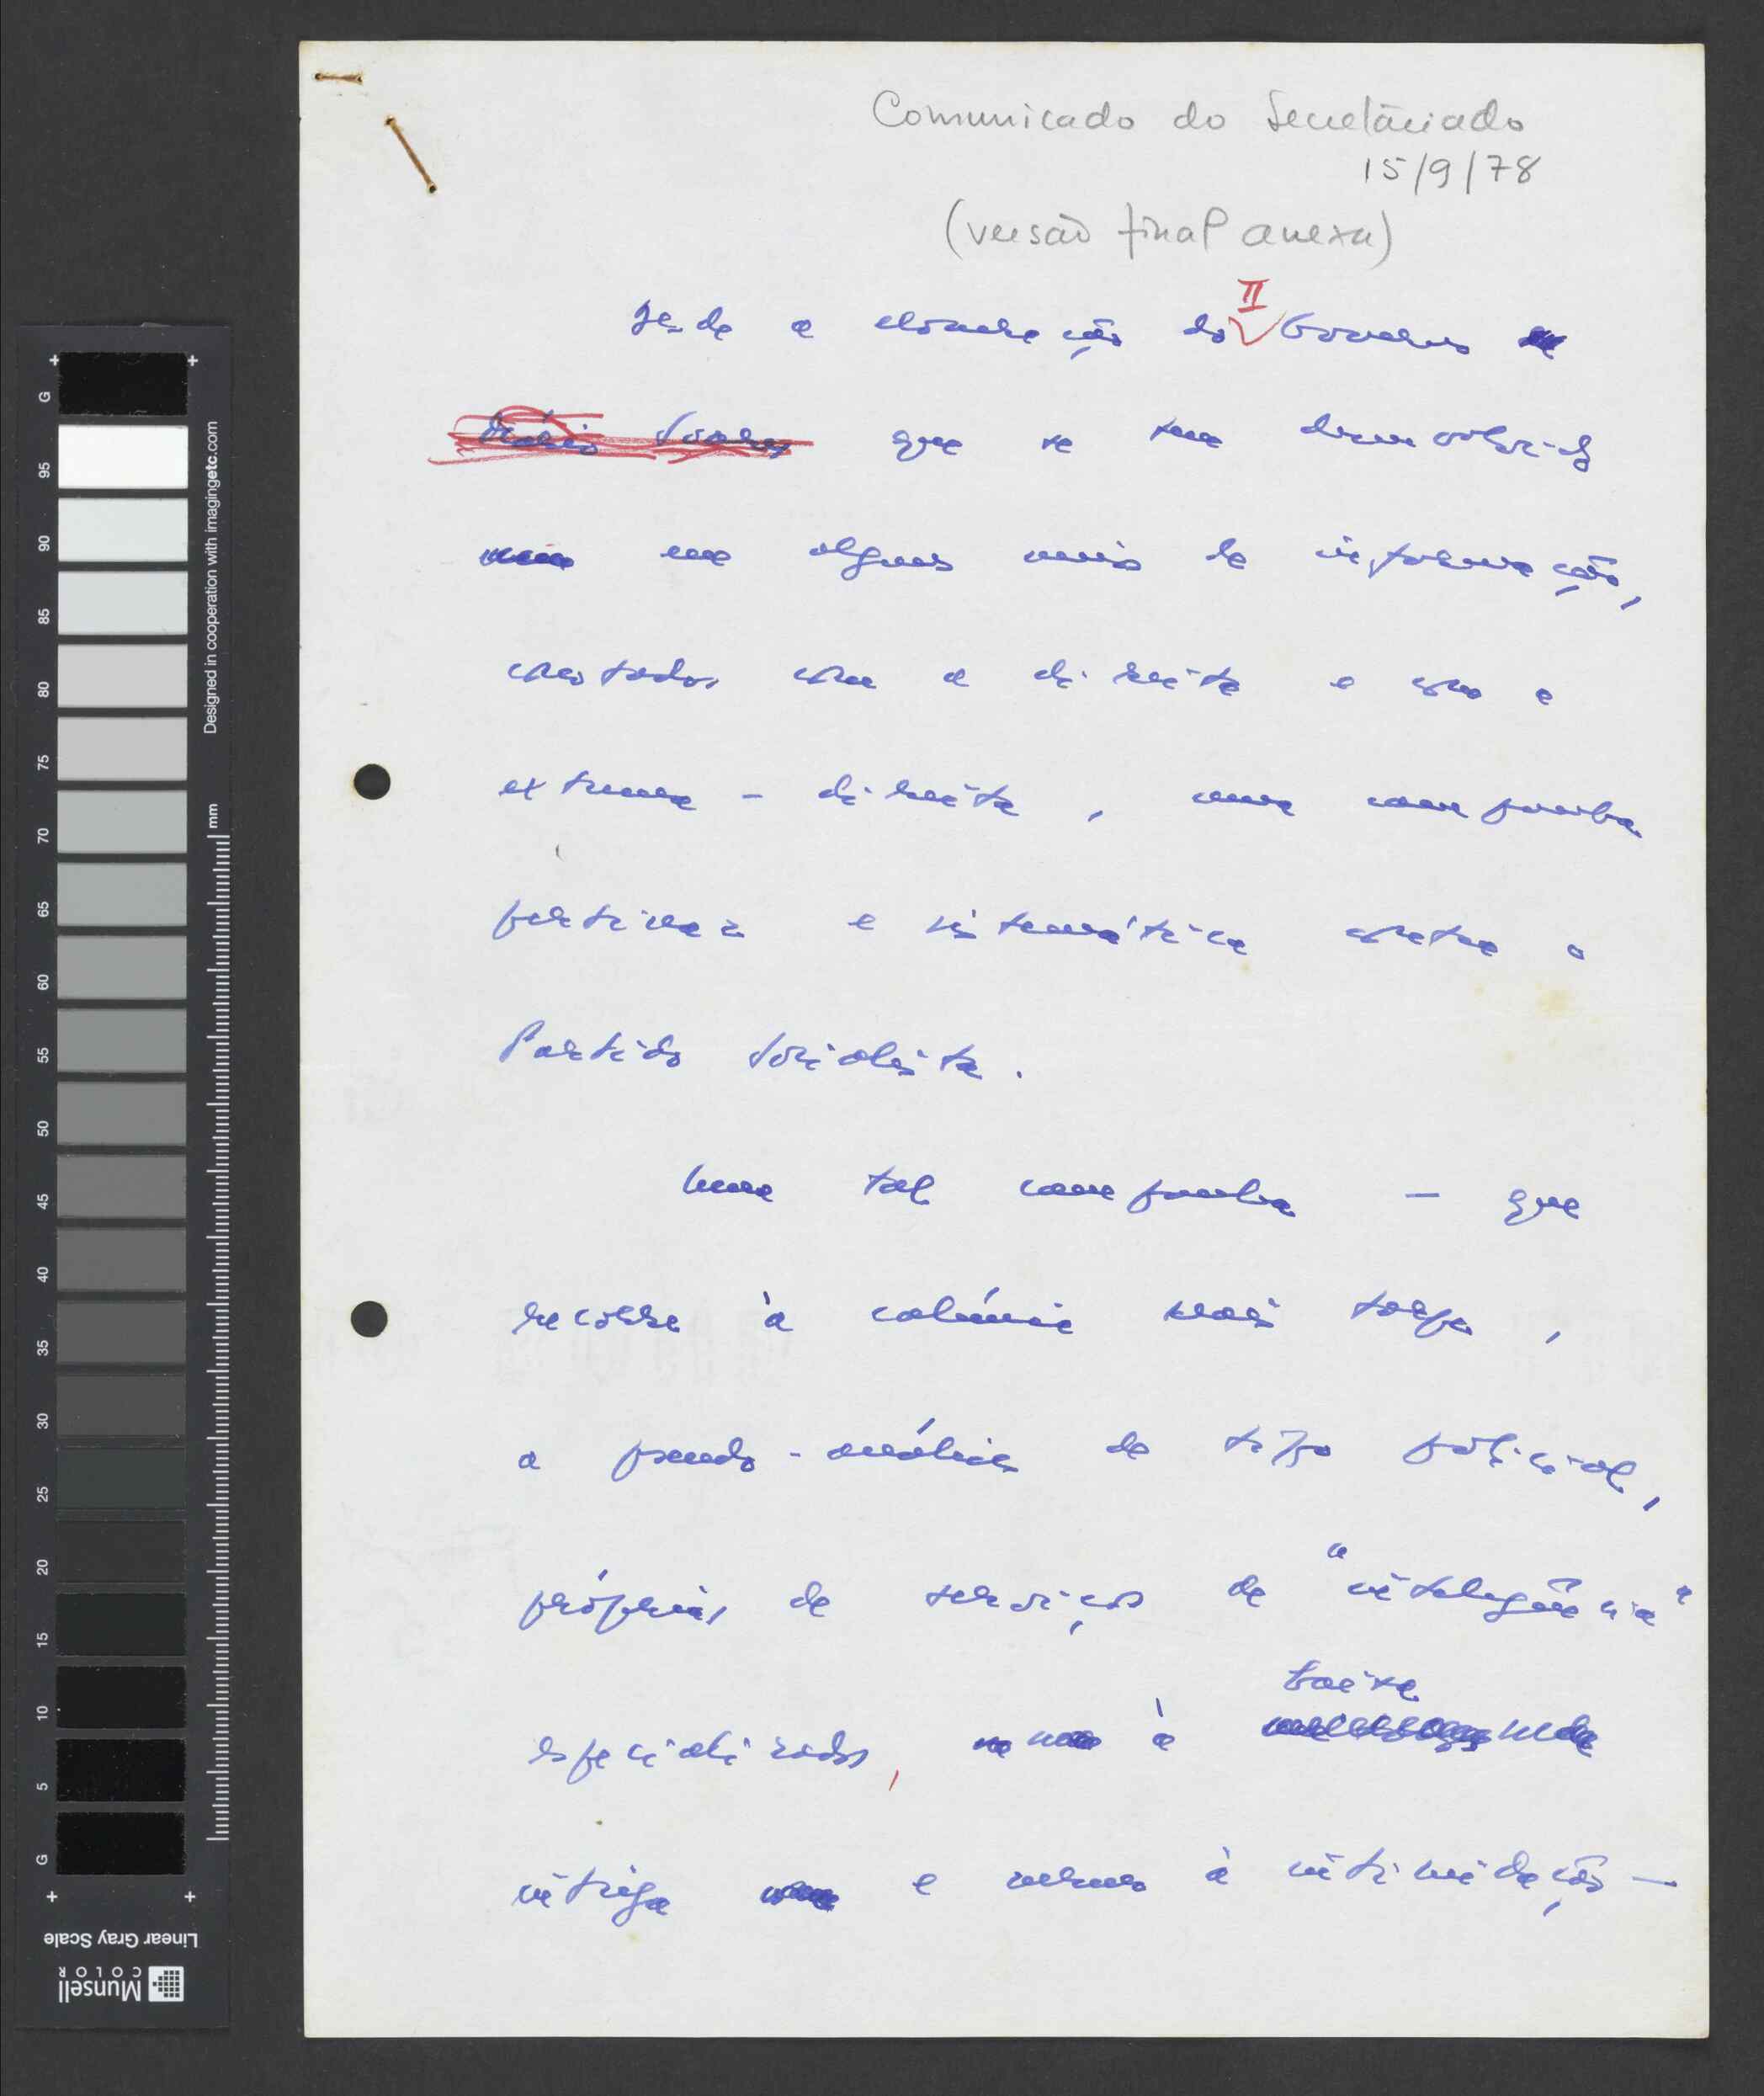 Comunicado do Secretariado
15/9/78
(versão final anexa)
II
Desde a exoneração do Governo
Mário Soares que se tem desenvolvido
em alguns meios de informação,
conotados com a direita e com a
extrema-direita, uma campanha
pertinaz e sistemática contra o
Partido Socialista.
Uma tal campanha — que
recorre à calúnia mais torpe,
a pseudo-análises de tipo policial,
próprias de serviços de "inteligência"
baixa
especializados, à
intriga e mesmo à intimidação —
G 95 90 85 80 75 70 65 60 55 50 45 40 35 30 25 20 15 10 5 G
Designed in cooperation with imagingetc.com
mm
Linear Gray Scale
Munsell
COLOR